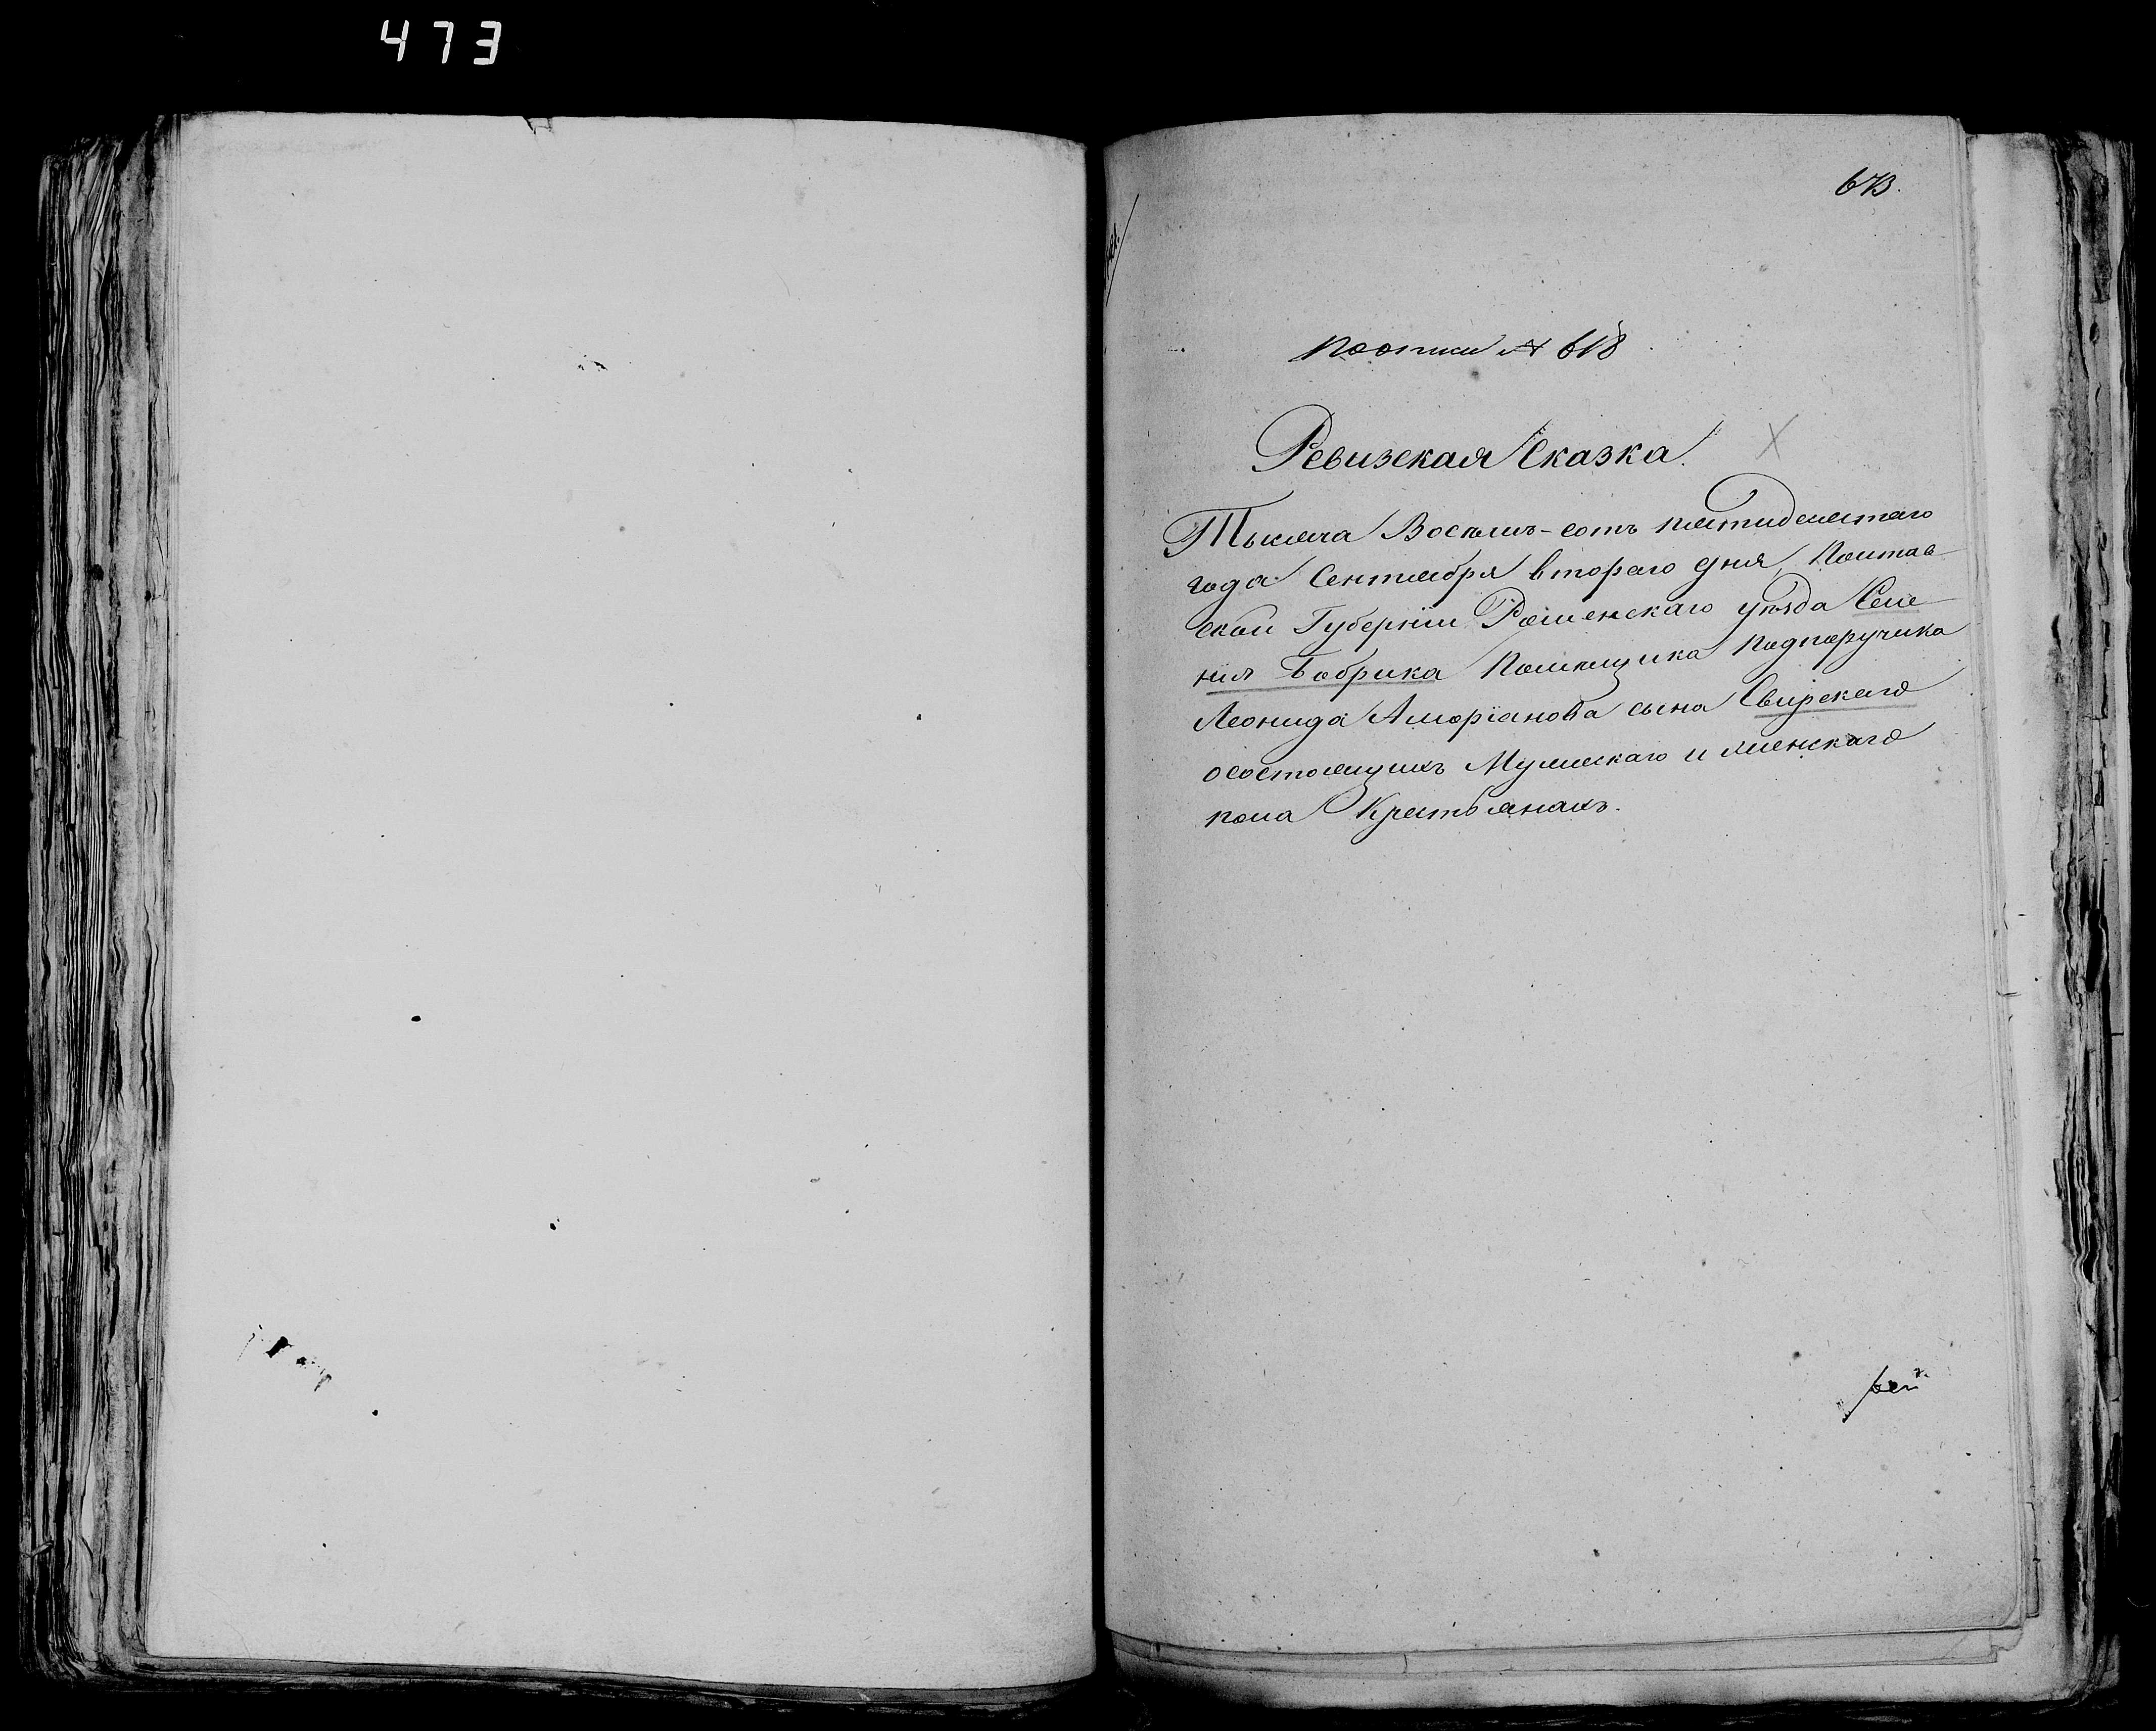 473
673.
по описи № 618
Ревизская Сказка.
Тысяча Восемь-сотъ пятидесятаго
года Сентября втораго дня, Полтав
ской Губерніи Роменскаго уѣзда Селе
нія Бобрика Помѣщика Подпоручика
Леонида сына Свирскаго
осостоящихъ Мужескаго и женскаго
пола Крестьянахъ.